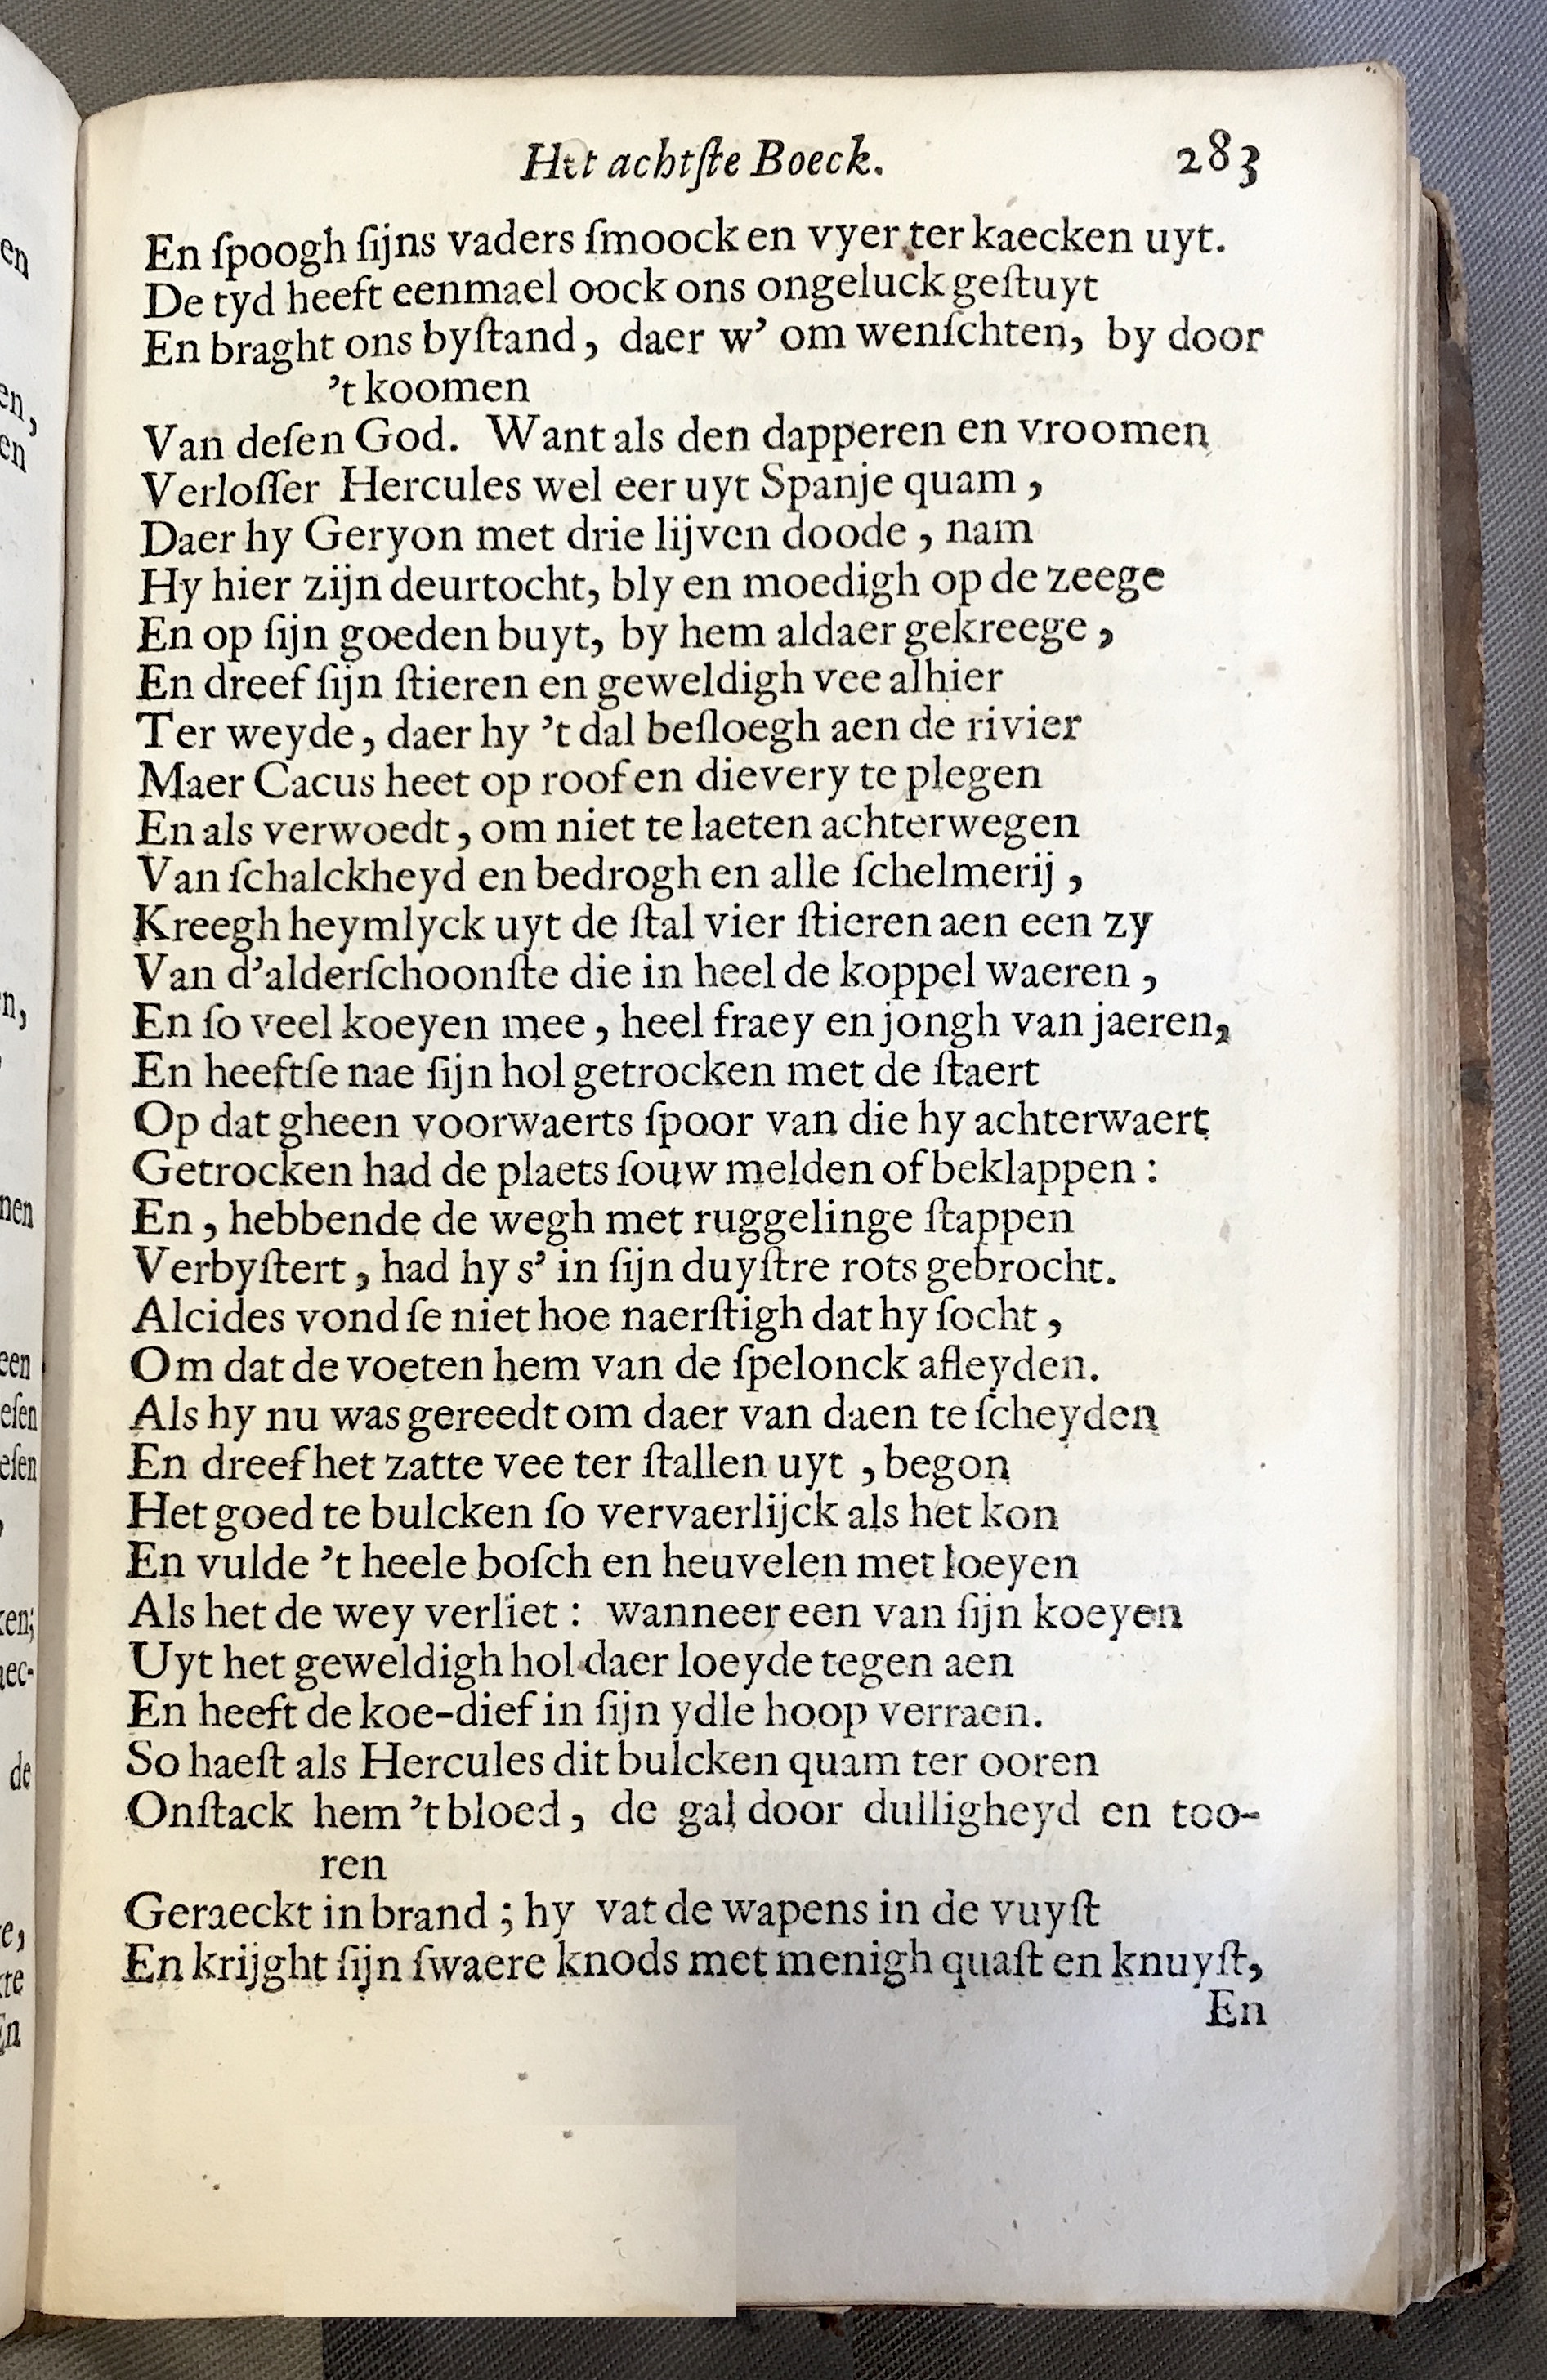 Het achtſte Boeck. 283
En ſpoogh ſijns vaders ſmoock en vyer ter kaecken uyt.
De tyd heeft eenmael oock ons ongeluck geſtuyt
En braght ons byſtand, daer w' om wenſchten, by door
't koomen
Van deſen God. Want als den dapperen en vroomen
Verloſſer Hercules wel eer uyt Spanje quam,
Daer hy Geryon met drie lijven doode, nam
Hy hier zijn deurtocht, bly en moedigh op de zeege
En op ſijn goeden buyt, by hem aldaer gekreege,
En dreef ſijn ſtieren en geweldigh vee alhier
Ter weyde, daer hy 't dal beſloegh aen de rivier
Maer Cacus heet op roof en dievery te plegen
En als verwoedt, om niet te laeten achterwegen
Van ſchalckheyd en bedrogh en alle ſchelmerij,
Kreegh heymlyck uyt de ſtal vier ſtieren aen een zy
Van d'alderſchoonſte die in heel de koppel waeren,
En ſo veel koeyen mee, heel fraey en jongh van jaeren,
En heeftſe nae ſijn hol getrocken met de ſtaert
Op dat gheen voorwaerts ſpoor van die hy achterwaert
Getrocken had de plaets ſouw melden of beklappen:
En, hebbende de wegh met ruggelinge ſtappen
Verbyſtert, had hy s' in ſijn duyſtre rots gebrocht.
Alcides vond ſe niet hoe naerſtigh dat hy ſocht,
Om dat de voeten hem van de ſpelonck afleyden.
Als hy nu was gereedt om daer van daen te ſcheyden
En dreef het zatte vee ter ſtallen uyt, begon
Het goed te bulcken ſo vervaerlijck als het kon
En vulde 't heele boſch en heuvelen met loeyen
Als het de wey verliet: wanneer een van ſijn koeyen
Uyt het geweldigh hol daer loeyde tegen aen
En heeft de koe-dief in ſijn ydle hoop verraen.
So haeſt als Hercules dit bulcken quam ter ooren
Onſtack hem 't bloed, de gal door dulligheyd en too-
ren
Geraeckt in brand; hy vat de wapens in de vuyſt
En krijght ſijn ſwaere knods met menigh quaſt en knuyſt,
En